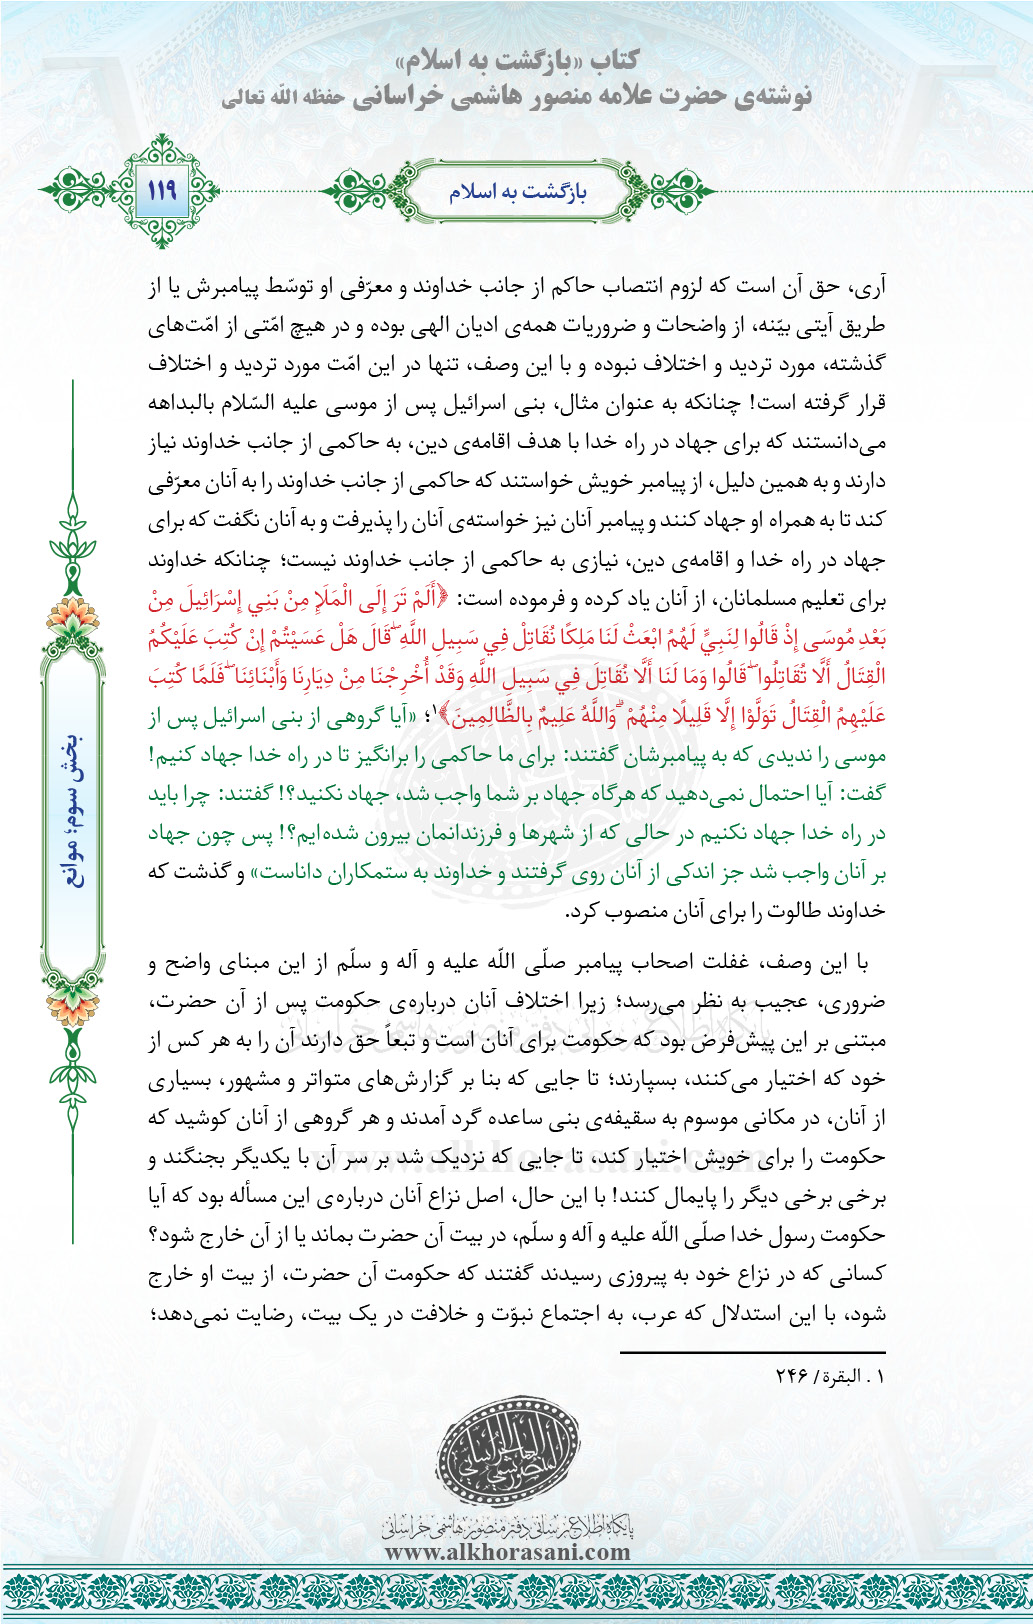 کتاب «بازگشت به اسلام»
نوشته‌ی حضرت علامه منصور هاشمی خراسانی حفظه الله تعالی
۱۱۹
بازگشت به اسلام
آری، حق آن است که لزوم انتصاب حاکم از جانب خداوند و معرّفی او توسّط پیامبرش یا از
طریق آیتی بیّنه، از واضحات و ضروریات همه‌ی ادیان الهی بوده و در هیچ امّتی از امّت‌های
گذشته، مورد تردید و اختلاف نبوده و با این وصف، تنها در این امّت مورد تردید و اختلاف
قرار گرفته است! چنانکه به عنوان مثال، بنی اسرائیل پس از موسی علیه السّلام بالبداهه
می‌دانستند که برای جهاد در راه خدا با هدف اقامه‌ی دین، به حاکمی از جانب خداوند نیاز
دارند و به همین دلیل، از پیامبر خویش خواستند که حاکمی از جانب خداوند را به آنان معرّفی
کند تا به همراه او جهاد کنند و پیامبر آنان نیز خواسته‌ی آنان را پذیرفت و به آنان نگفت که برای
جهاد در راه خدا و اقامه‌ی دین، نیازی به حاکمی از جانب خداوند نیست؛ چنانکه خداوند
برای تعلیم مسلمانان، از آنان یاد کرده و فرموده است: ﴿أَلَمْ تَرَ إِلَى الْمَلَإِ مِنْ بَنِي إِسْرَائِيلَ مِنْ
بَعْدِ مُوسَى إِذْ قَالُوا لِنَبِيٍّ لَهُمُ ابْعَثْ لَنَا مَلِكًا نُقَاتِلْ فِي سَبِيلِ اللَّهِ ۖ قَالَ هَلْ عَسَيْتُمْ إِنْ كُتِبَ عَلَيْكُمُ
الْقِتَالُ أَلَّا تُقَاتِلُوا ۖ قَالُوا وَمَا لَنَا أَلَّا نُقَاتِلَ فِي سَبِيلِ اللَّهِ وَقَدْ أُخْرِجْنَا مِنْ دِيَارِنَا وَأَبْنَائِنَا ۖ فَلَمَّا كُتِبَ
عَلَيْهِمُ الْقِتَالُ تَوَلَّوْا إِلَّا قَلِيلًا مِنْهُمْ ۗ وَاللَّهُ عَلِيمٌ بِالظَّالِمِينَ﴾۱؛ «آیا گروهی از بنی اسرائیل پس از
موسی را ندیدی که به پیامبرشان گفتند: برای ما حاکمی را برانگیز تا در راه خدا جهاد کنیم!
گفت: آیا احتمال نمی‌دهید که هرگاه جهاد بر شما واجب شد، جهاد نکنید؟! گفتند: چرا باید
در راه خدا جهاد نکنیم در حالی که از شهرها و فرزندانمان بیرون شده‌ایم؟! پس چون جهاد
بر آنان واجب شد جز اندکی از آنان روی گرفتند و خداوند به ستمکاران داناست» و گذشت که
خداوند طالوت را برای آنان منصوب کرد.
با این وصف، غفلت اصحاب پیامبر صلّی اللّه علیه و آله و سلّم از این مبنای واضح و
ضروری، عجیب به نظر می‌رسد؛ زیرا اختلاف آنان درباره‌ی حکومت پس از آن حضرت،
مبتنی بر این پیش‌فرض بود که حکومت برای آنان است و تبعاً حق دارند آن را به هر کس از
خود که اختیار می‌کنند، بسپارند؛ تا جایی که بنا بر گزارش‌های متواتر و مشهور، بسیاری
از آنان، در مکانی موسوم به سقیفه‌ی بنی ساعده گرد آمدند و هر گروهی از آنان کوشید که
حکومت را برای خویش اختیار کند، تا جایی که نزدیک شد بر سر آن با یکدیگر بجنگند و
برخی برخی دیگر را پایمال کنند! با این حال، اصل نزاع آنان درباره‌ی این مسأله بود که آیا
حکومت رسول خدا صلّی اللّه علیه و آله و سلّم، در بیت آن حضرت بماند یا از آن خارج شود؟
کسانی که در نزاع خود به پیروزی رسیدند گفتند که حکومت آن حضرت، از بیت او خارج
شود، با این استدلال که عرب، به اجتماع نبوّت و خلافت در یک بیت، رضایت نمی‌دهد؛
۱ . البقرة/ ۲۴۶
بخش سوم؛ موانع
پایگاه اطلاع رسانی دفتر منصور هاشمی خراسانی
www.alkhorasani.com